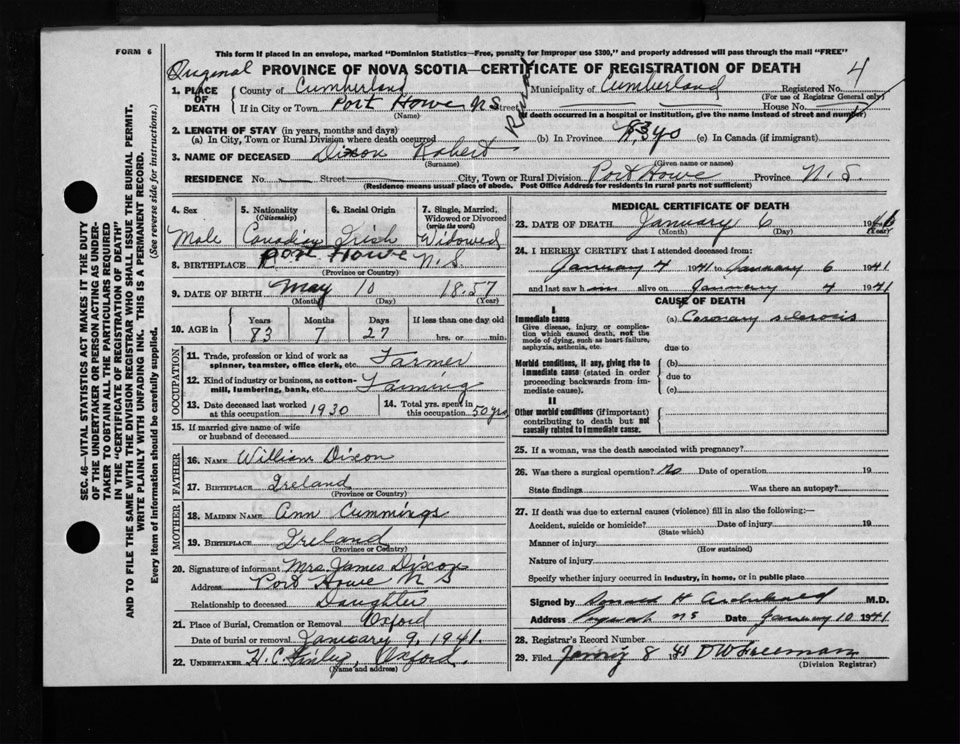 FORM 6
This form if placed in an envelope, marked "Dominion Statistics—Free, penalty for improper use $300," and properly addressed will pass through the mail "FREE"
Original PROVINCE OF NOVA SCOTIA—CERTIFICATE OF REGISTRATION OF DEATH 4
1. PLACE OF DEATH
County of Cumberland Municipality of Cumberland Registered No.
(For use of Registrar General only)
If in City or Town Port Howe N.S. Street Rural House No.
(Name) (If death occurred in a hospital or institution, give the name instead of street and number)
2. LENGTH OF STAY (in years, months and days)
(a) In City, Town or Rural Division where death occurred (b) In Province (c) In Canada (if immigrant)
3. NAME OF DECEASED Dixon Robert
(Surname) (Given name or names)
RESIDENCE No. Street City, Town or Rural Division Port Howe Province N.S.
(Residence means usual place of abode. Post Office Address for residents in rural parts not sufficient)
4. Sex
Male
5. Nationality
(Citizenship)
6. Racial Origin
Irish
7. Single, Married, Widowed or Divorced
(write the word)
Widowed
8. BIRTHPLACE Port Howe N.S.
(Province or Country)
9. DATE OF BIRTH May 10 1857
(Month) (Day) (Year)
10. AGE in
Years Months Days If less than one day old
83 7 27 hrs. or min.
OCCUPATION
11. Trade, profession or kind of work as spinner, teamster, office clerk, etc. Farmer
12. Kind of industry or business, as cotton-mill, lumbering, bank, etc. Farming
13. Date deceased last worked at this occupation 1930
14. Total yrs. spent in this occupation 50 yrs
15. If married give name of wife or husband of deceased
FATHER
16. NAME William Dixon
17. BIRTHPLACE Ireland
(Province or Country)
MOTHER
18. MAIDEN NAME Ann Cummings
19. BIRTHPLACE Ireland
(Province or Country)
20. Signature of informant Mrs. James Dixon
Address Port Howe N S
Relationship to deceased Daughter
21. Place of Burial, Cremation or Removal Oxford
Date of burial or removal January 9, 1941.
22. UNDERTAKER H. C. Finlay, Oxford.
(Name and address)
MEDICAL CERTIFICATE OF DEATH
23. DATE OF DEATH January 6 19
(Month) (Day) (Year)
24. I HEREBY CERTIFY that I attended deceased from:
January 4 1941 to January 6 1941
and last saw h im alive on January 4 1941
CAUSE OF DEATH
I
Immediate cause
Give disease, injury or complication which caused death, not the mode of dying, such as heart failure, asphyxia, asthenia, etc.
(a) Coronary sclerosis
due to
Morbid conditions, if any, giving rise to immediate cause (stated in order proceeding backwards from immediate cause).
(b)
due to
(c)
II
Other morbid conditions (if important) contributing to death but not causally related to immediate cause.
25. If a woman, was the death associated with pregnancy?
26. Was there a surgical operation? No Date of operation 19
State findings Was there an autopsy?
27. If death was due to external causes (violence) fill in also the following:—
Accident, suicide or homicide? Date of injury 19
(State which)
Manner of injury
(How sustained)
Nature of injury
Specify whether injury occurred in industry, in home, or in public place
Signed by Donald H Archibald M.D.
Address Pugwash N S Date January 10 1941
28. Registrar's Record Number
29. Filed 8 1941 D W Freeman
(Division Registrar)
SEC. 46—VITAL STATISTICS ACT MAKES IT THE DUTY
OF THE UNDERTAKER OR PERSON ACTING AS UNDERTAKER
TO OBTAIN ALL THE PARTICULARS REQUIRED
IN THE "CERTIFICATE OF REGISTRATION OF DEATH"
AND TO FILE THE SAME WITH THE DIVISION REGISTRAR WHO SHALL ISSUE THE BURIAL PERMIT.
WRITE PLAINLY WITH UNFADING INK. THIS IS A PERMANENT RECORD.
Every item of information should be carefully supplied. (See reverse side for instructions.)